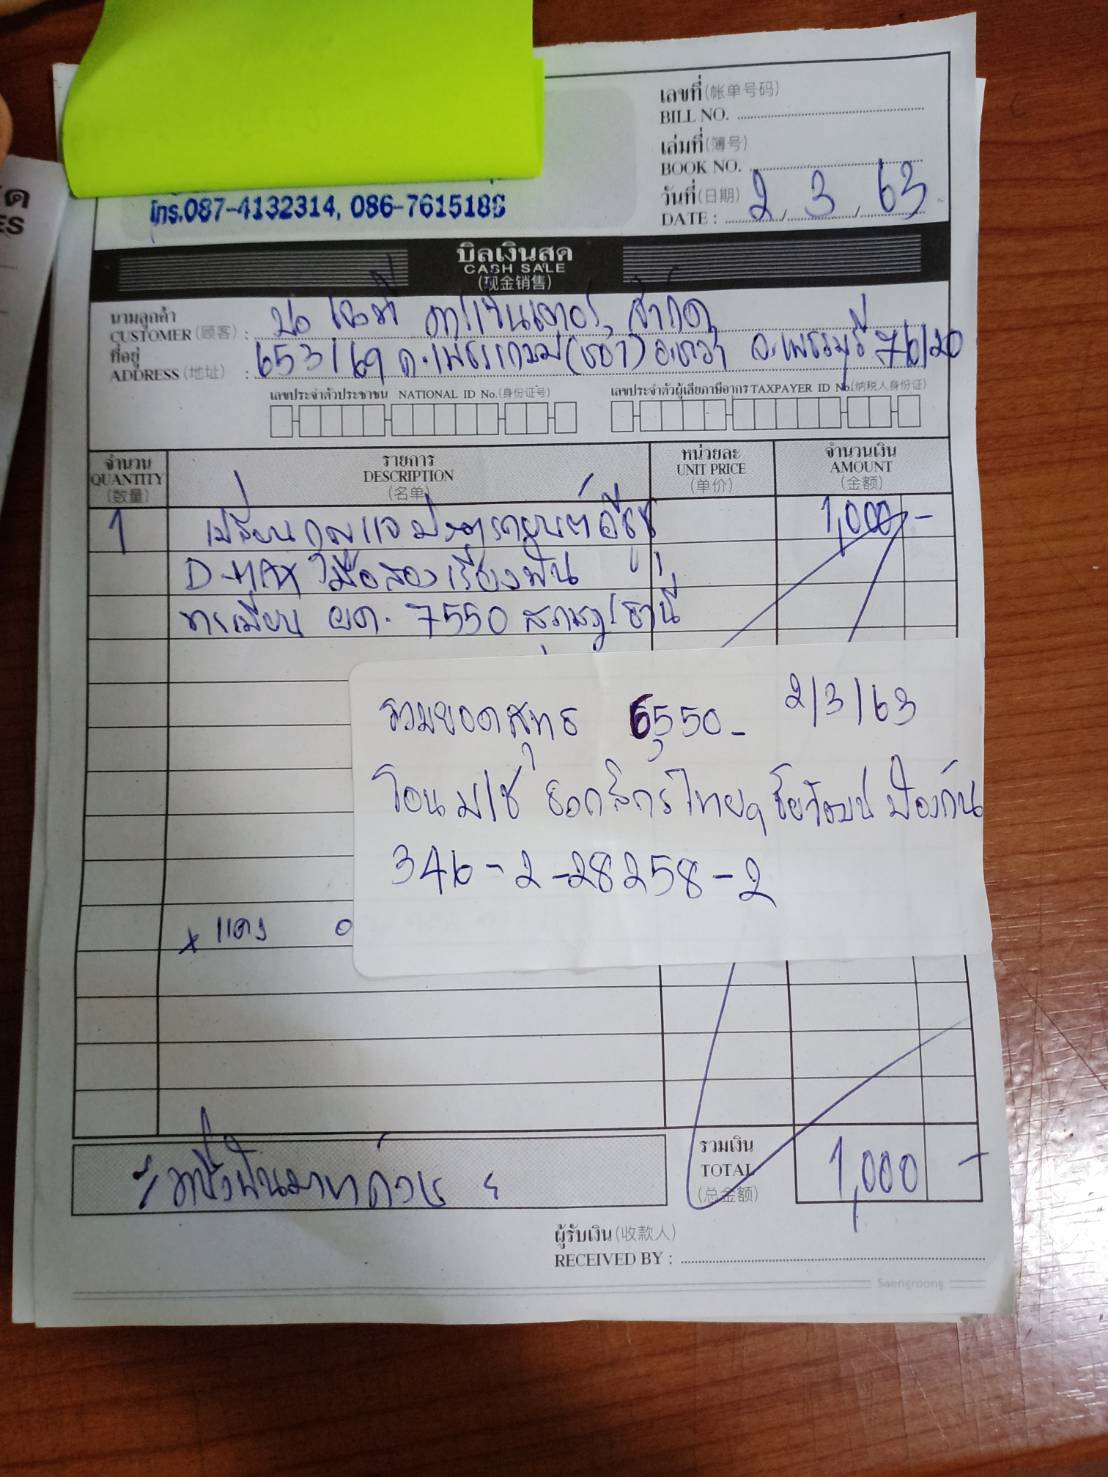 เลขที่ (帐单号码)
BILL NO.
เล่มที่ (簿号)
BOOK NO.
วันที่ (日期)
DATE : 2 / 3 / 63
โทร.087-4132314, 086-7615186
บิลเงินสด
CASH SALE
(现金销售)
นามลูกค้า
CUSTOMER (顾客) : จำกัด
ที่อยู่
ADDRESS (地址) : 653/69 ถ.เพชรเกษม อ.ชะอำ จ.เพชรบุรี 76120
เลขประจำตัวประชาชน NATIONAL ID No.(身份证号)
เลขประจำตัวผู้เสียภาษีอากร TAXPAYER ID No.(纳税人身份证)
จำนวน QUANTITY (数量)
รายการ DESCRIPTION (名单)
หน่วยละ UNIT PRICE (单价)
จำนวนเงิน AMOUNT (金额)
1 เปลี่ยนกุญแจประตูรถยนต์อีซูซุ 1,000 -
D-MAX มือสองเรียงฟัน
ทะเบียน ผต. 7550 สุราษฎร์ธานี
รวมยอดสุทธิ 6,550- 2/3/63
โอน บ/ช ธ.กสิกรไทย ชัยวัฒน์ ป้องกัน
346-2-28258-2
x แดง
รวมเงิน
TOTAL 1,000 -
(总金额)
ผู้รับเงิน (收款人)
RECEIVED BY :
Saengroong